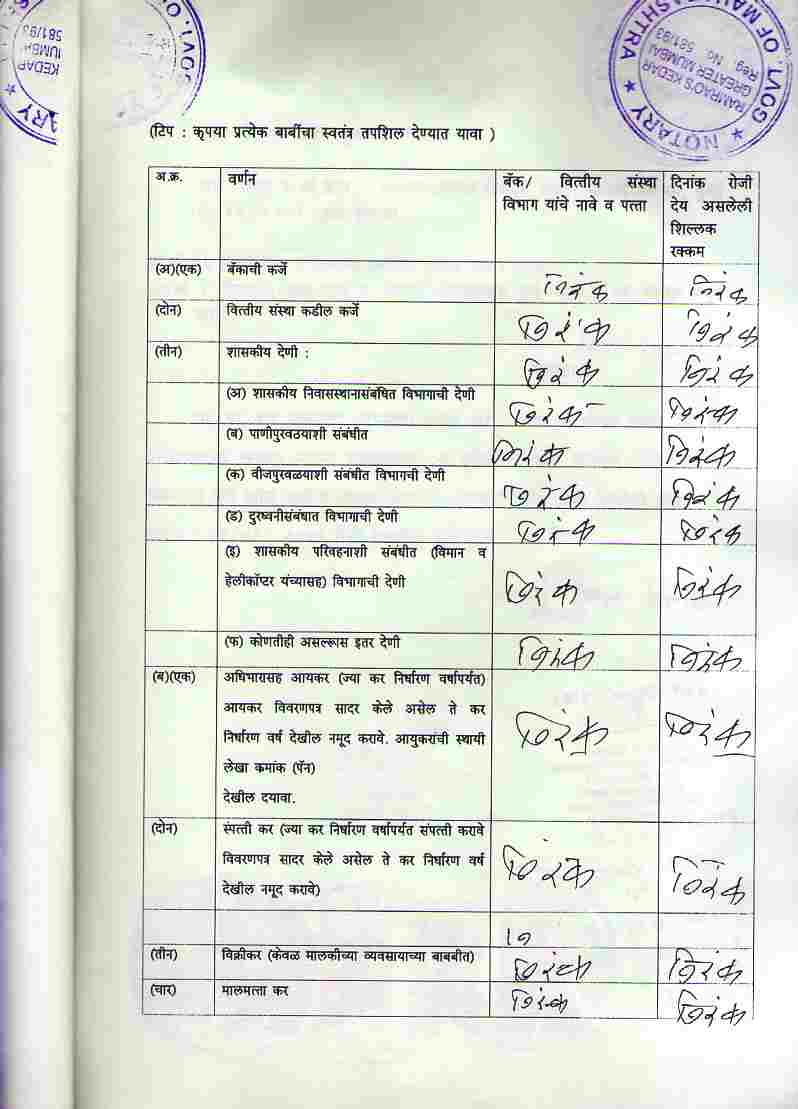 NOTARY
KEDAR
581/93
GOVT.
OF MAHARASHTRA
NOTARY
RAMRAO S KEDAR
GREATER MUMBAI
Reg No. 581/93
(टिप : कृपया प्रत्येक बाबींचा स्वतंत्र तपशिल देण्यात यावा )
अ.क्र. वर्णन बॅक/ वित्तीय संस्था दिनांक रोजी
विभाग यांचे नावे व पत्ता देय असलेली
शिल्लक
रक्कम
(अ)(एक) बॅकाची कर्जे निरंक निरंक
(दोन) वित्तीय संस्था कडील कर्जे निरंक निरंक
(तीन) शासकीय देणी : निरंक निरंक
(अ) शासकीय निवासस्थानासंबंधित विभागाची देणी निरंक निरंक
(ब) पाणीपुरवठयाशी संबंधीत निरंक निरंक
(क) वीजपुरवळयाशी संबंधीत विभागची देणी निरंक निरंक
(ड) दुरध्वनीसंबंधात विभागाची देणी निरंक निरंक
(इ) शासकीय परिवहनाशी संबंधीत (विमान व
हेलीकॉप्टर यंच्यासह) विभागाची देणी निरंक निरंक
(फ) कोणतीही असल्यास इतर देणी निरंक निरंक
(ब)(एक) अधिभारासह आयकर (ज्या कर निर्धारण वर्षापर्यत)
आयकर विवरणपत्र सादर केले असेल ते कर
निर्धारण वर्ष देखील नमूद करावे. आयुकरांची स्थायी निरंक निरंक
लेखा कमांक (पॅन)
देखील दयावा.
(दोन) संपत्ती कर (ज्या कर निर्धारण वर्षापर्यत संपत्ती करावे
विवरणपत्र सादर केले असेल ते कर निर्धारण वर्ष निरंक निरंक
देखील नमूद करावे)
(तीन) विक्रीकर (केवळ मालकीच्या व्यवसायाच्या बाबबीत) निरंक निरंक
(चार) मालमत्ता कर निरंक निरंक